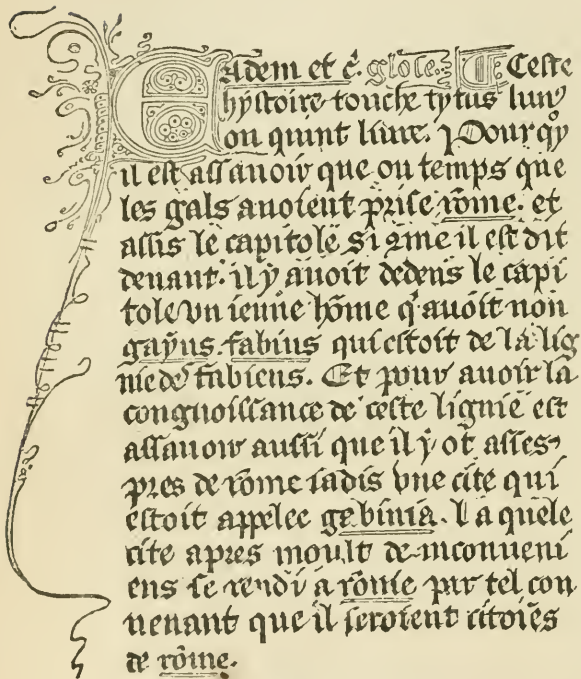 Eadem et c̃. glose. ¶ Ceste
hystoire touche tytus liuiꝰ
ou quint liure. ⁊ Pour qͦy
il est assauoir que ou temps que
les gals auoient prise rōme. et
assis le capitole si ꝯme il est dit
deuant. il y auoit dedens le capi
tole vn ieune hōme q̕ auoit non
gayus. fabius qui estoit de la lig
nie de fabiens. Et pour auoir la
congnoissance de ceste lignie est
assauoir aussi que il y ot asses
pres de rōme iadis vne cite qui
estoit appelee gabinia. La quele
cite apres moult de inconueni
ens se rendi a rōme par tel con
uenant que il seroient citoiēs
de rōme.